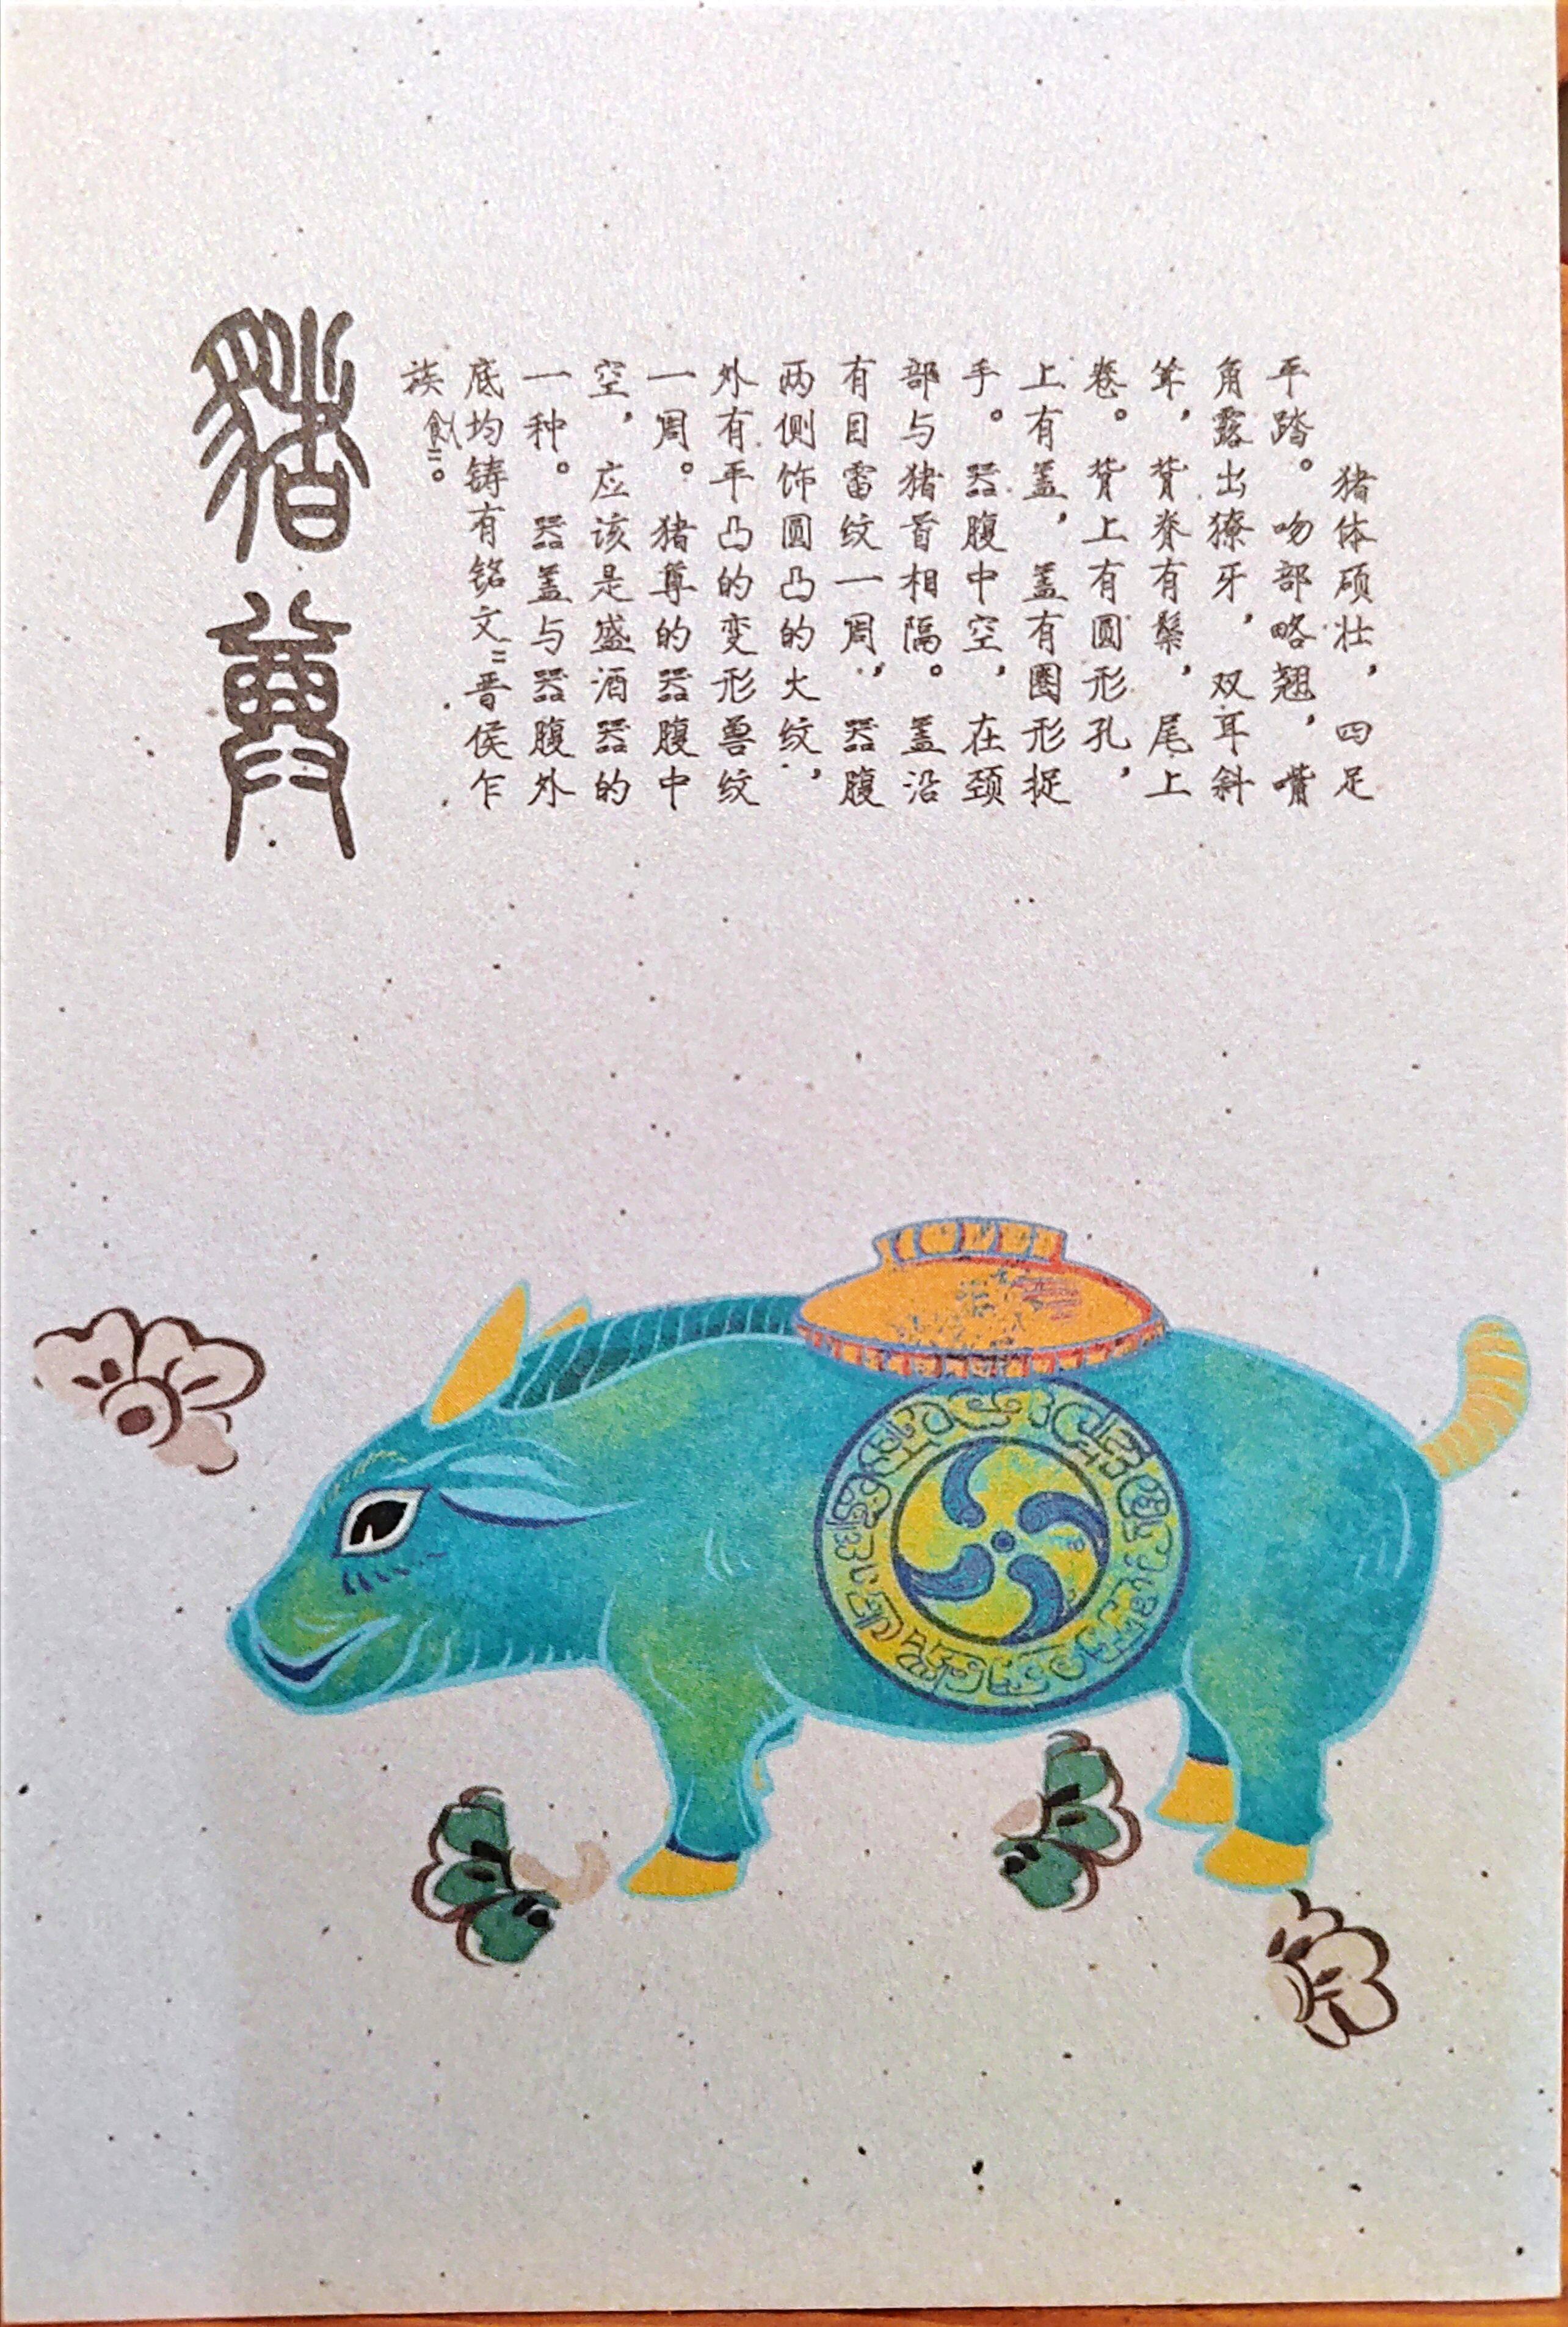 猪体硕壮，四足
平踏。吻部略翘，嘴
角露出獠牙，双耳斜
耸，背脊有鬃，尾上
卷。背上有圆形孔，
上有盖，盖有圈形捉
手。器腹中空，在颈
部与猪首相隔。盖沿
有目雷纹一周，器腹
两侧饰圆凸的火纹，
外有平凸的变形兽纹
一周。猪尊的器腹中
空，应该是盛酒器的
一种。器盖与器腹外
底均铸有铭文“晋侯乍
族飤”。
豬尊